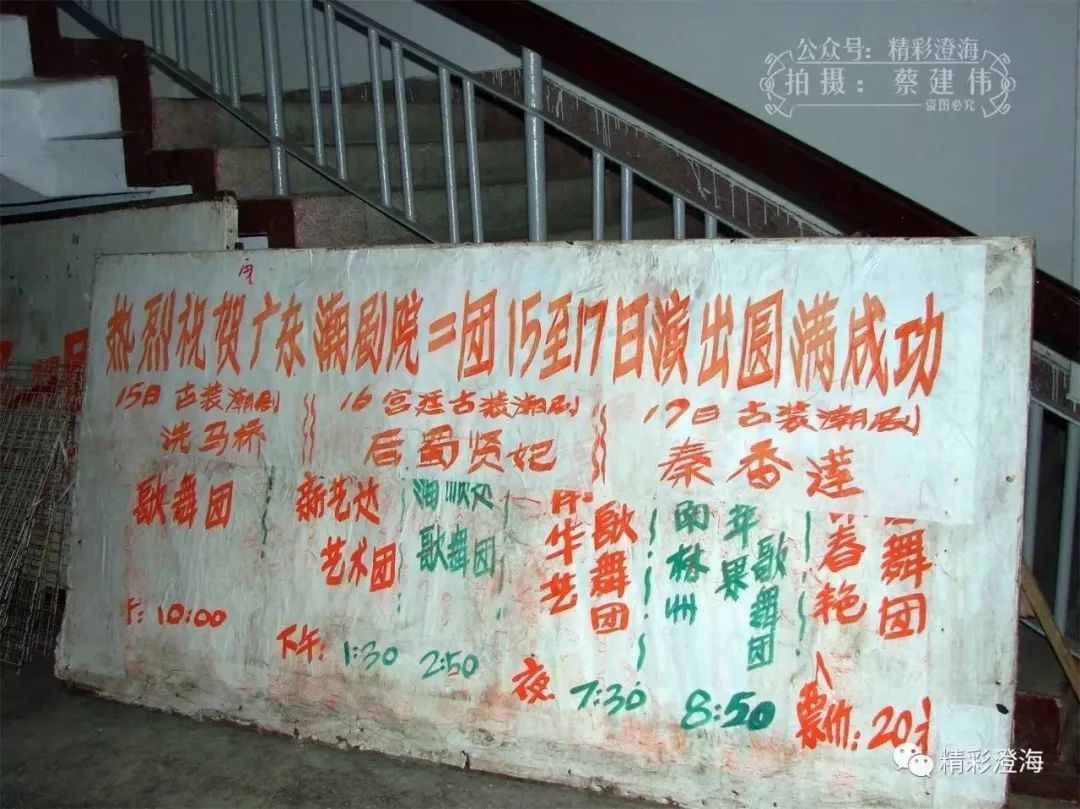 公众号：精彩澄海
拍摄：蔡建伟
盗图必究
热烈祝贺广东潮剧院二团15至17日演出圆满成功
15日 古装潮剧
洗马桥
16 宫廷古装潮剧
后蜀贤妃
17日 古装潮剧
秦香莲
歌舞团
新艺达
艺术团
歌舞团
华艺
歌舞团
雨林州
年果
歌舞团
春艳
舞团
10:00
下午：1:30 2:50
夜 7:30 8:50
票价：20
精彩澄海